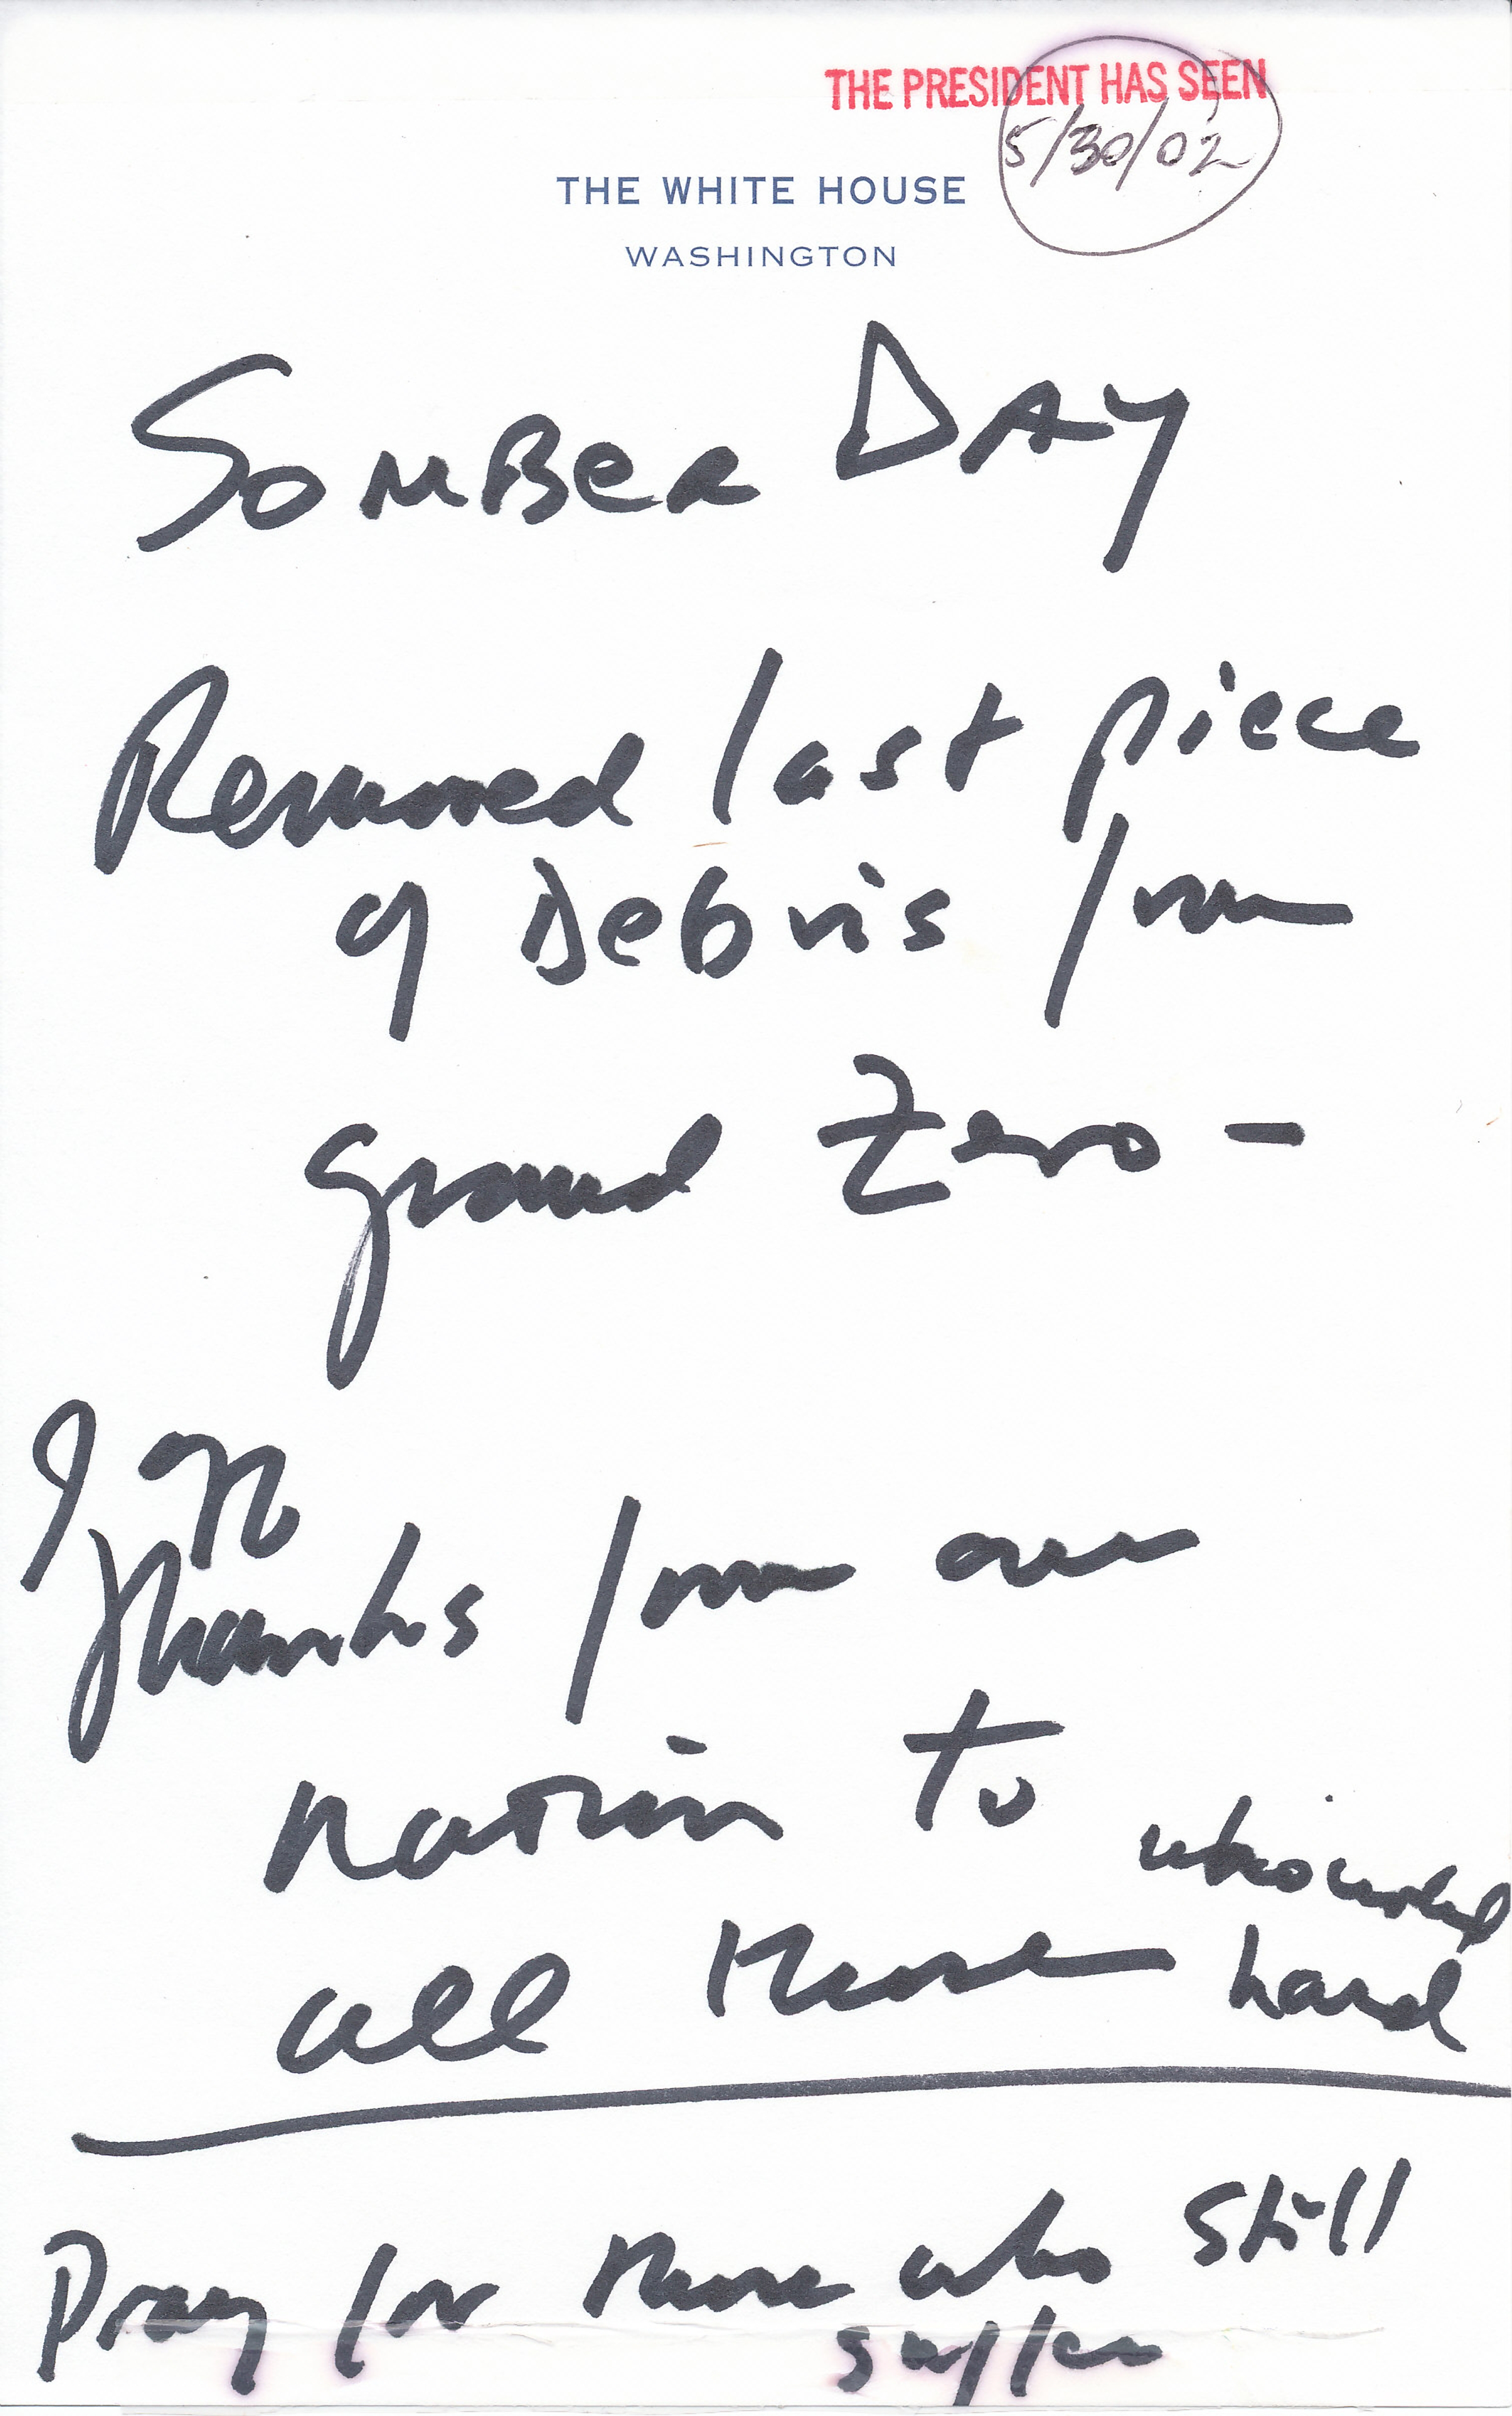 THE PRESIDENT HAS SEEN
5/30/02
THE WHITE HOUSE
WASHINGTON
SOMBER DAY
Removed last piece
of Debris from
ground Zero -
Thanks from our
nation to
who worked
all those hard
Pray for those who still
suffer